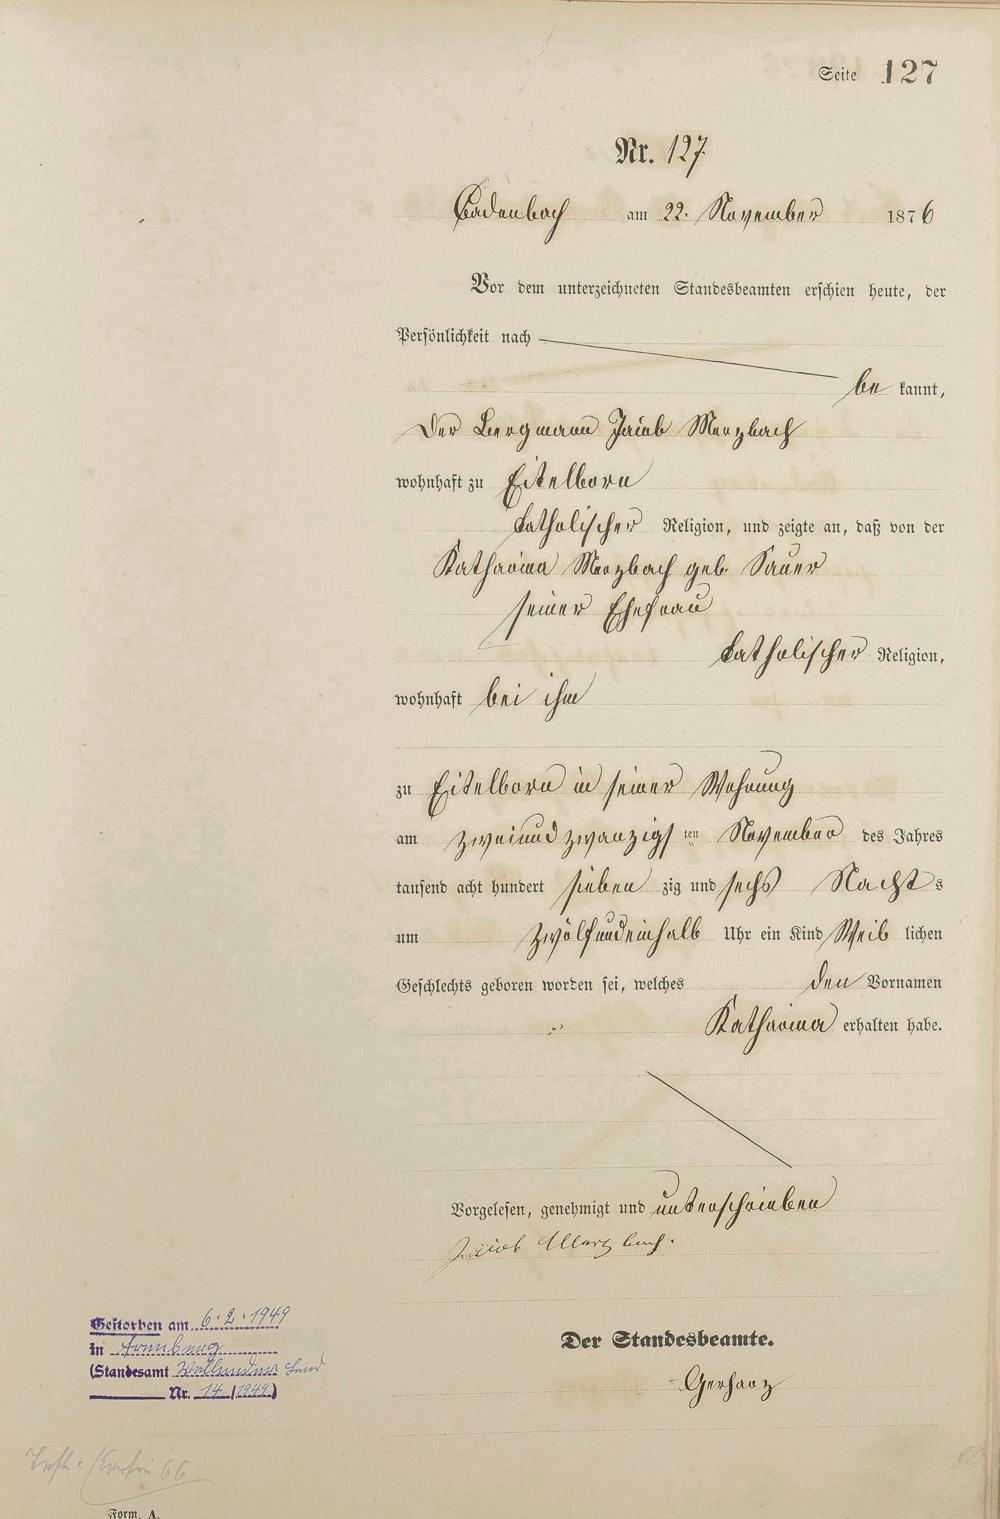 Seite 127
Nr. 127
Cadenbach am 22. November 1876
Vor dem unterzeichneten Standesbeamten erschien heute, der
Persönlichkeit nach
be kannt,
der Bergmann Jacob Merzbach
wohnhaft zu Eitelborn
katholischer Religion, und zeigte an, daß von der
Katharina Merzbach geb. Sauer
seiner Ehefrau
katholischer Religion,
wohnhaft bei ihm
zu Eitelborn in seiner Wohnung
am zweiundzwanzigsten November des Jahres
tausend acht hundert siebenzig und sechs Nachts
um zwölfundeinhalb Uhr ein Kind Weib lichen
Geschlechts geboren worden sei, welches den Vornamen
Katharina erhalten habe.
Vorgelesen, genehmigt und unterschrieben
Jacob Merzbach.
Der Standesbeamte.
Gerharz
Gestorben am 6.2.1949
in
(Standesamt Land
Nr. 14/1949)
66
Form. A.